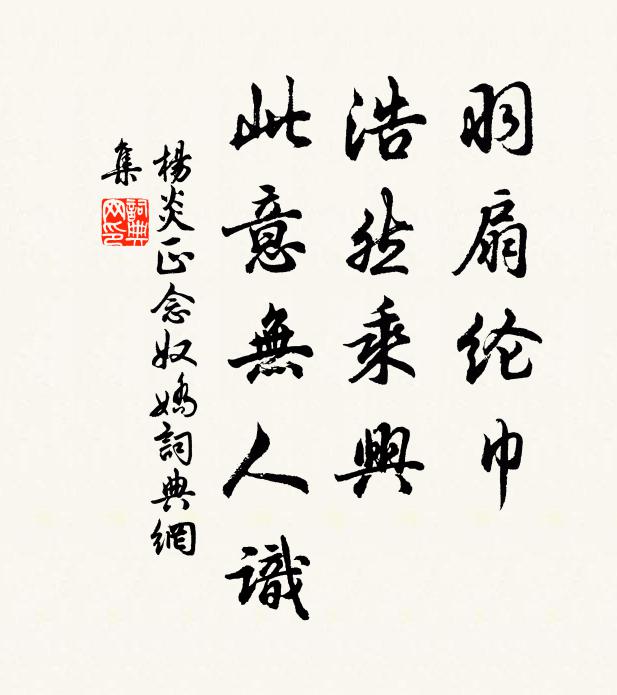 羽扇纶巾
浩然乘興
此意無人識
楊炎正念奴嬌詞典網
集
詞典
网印